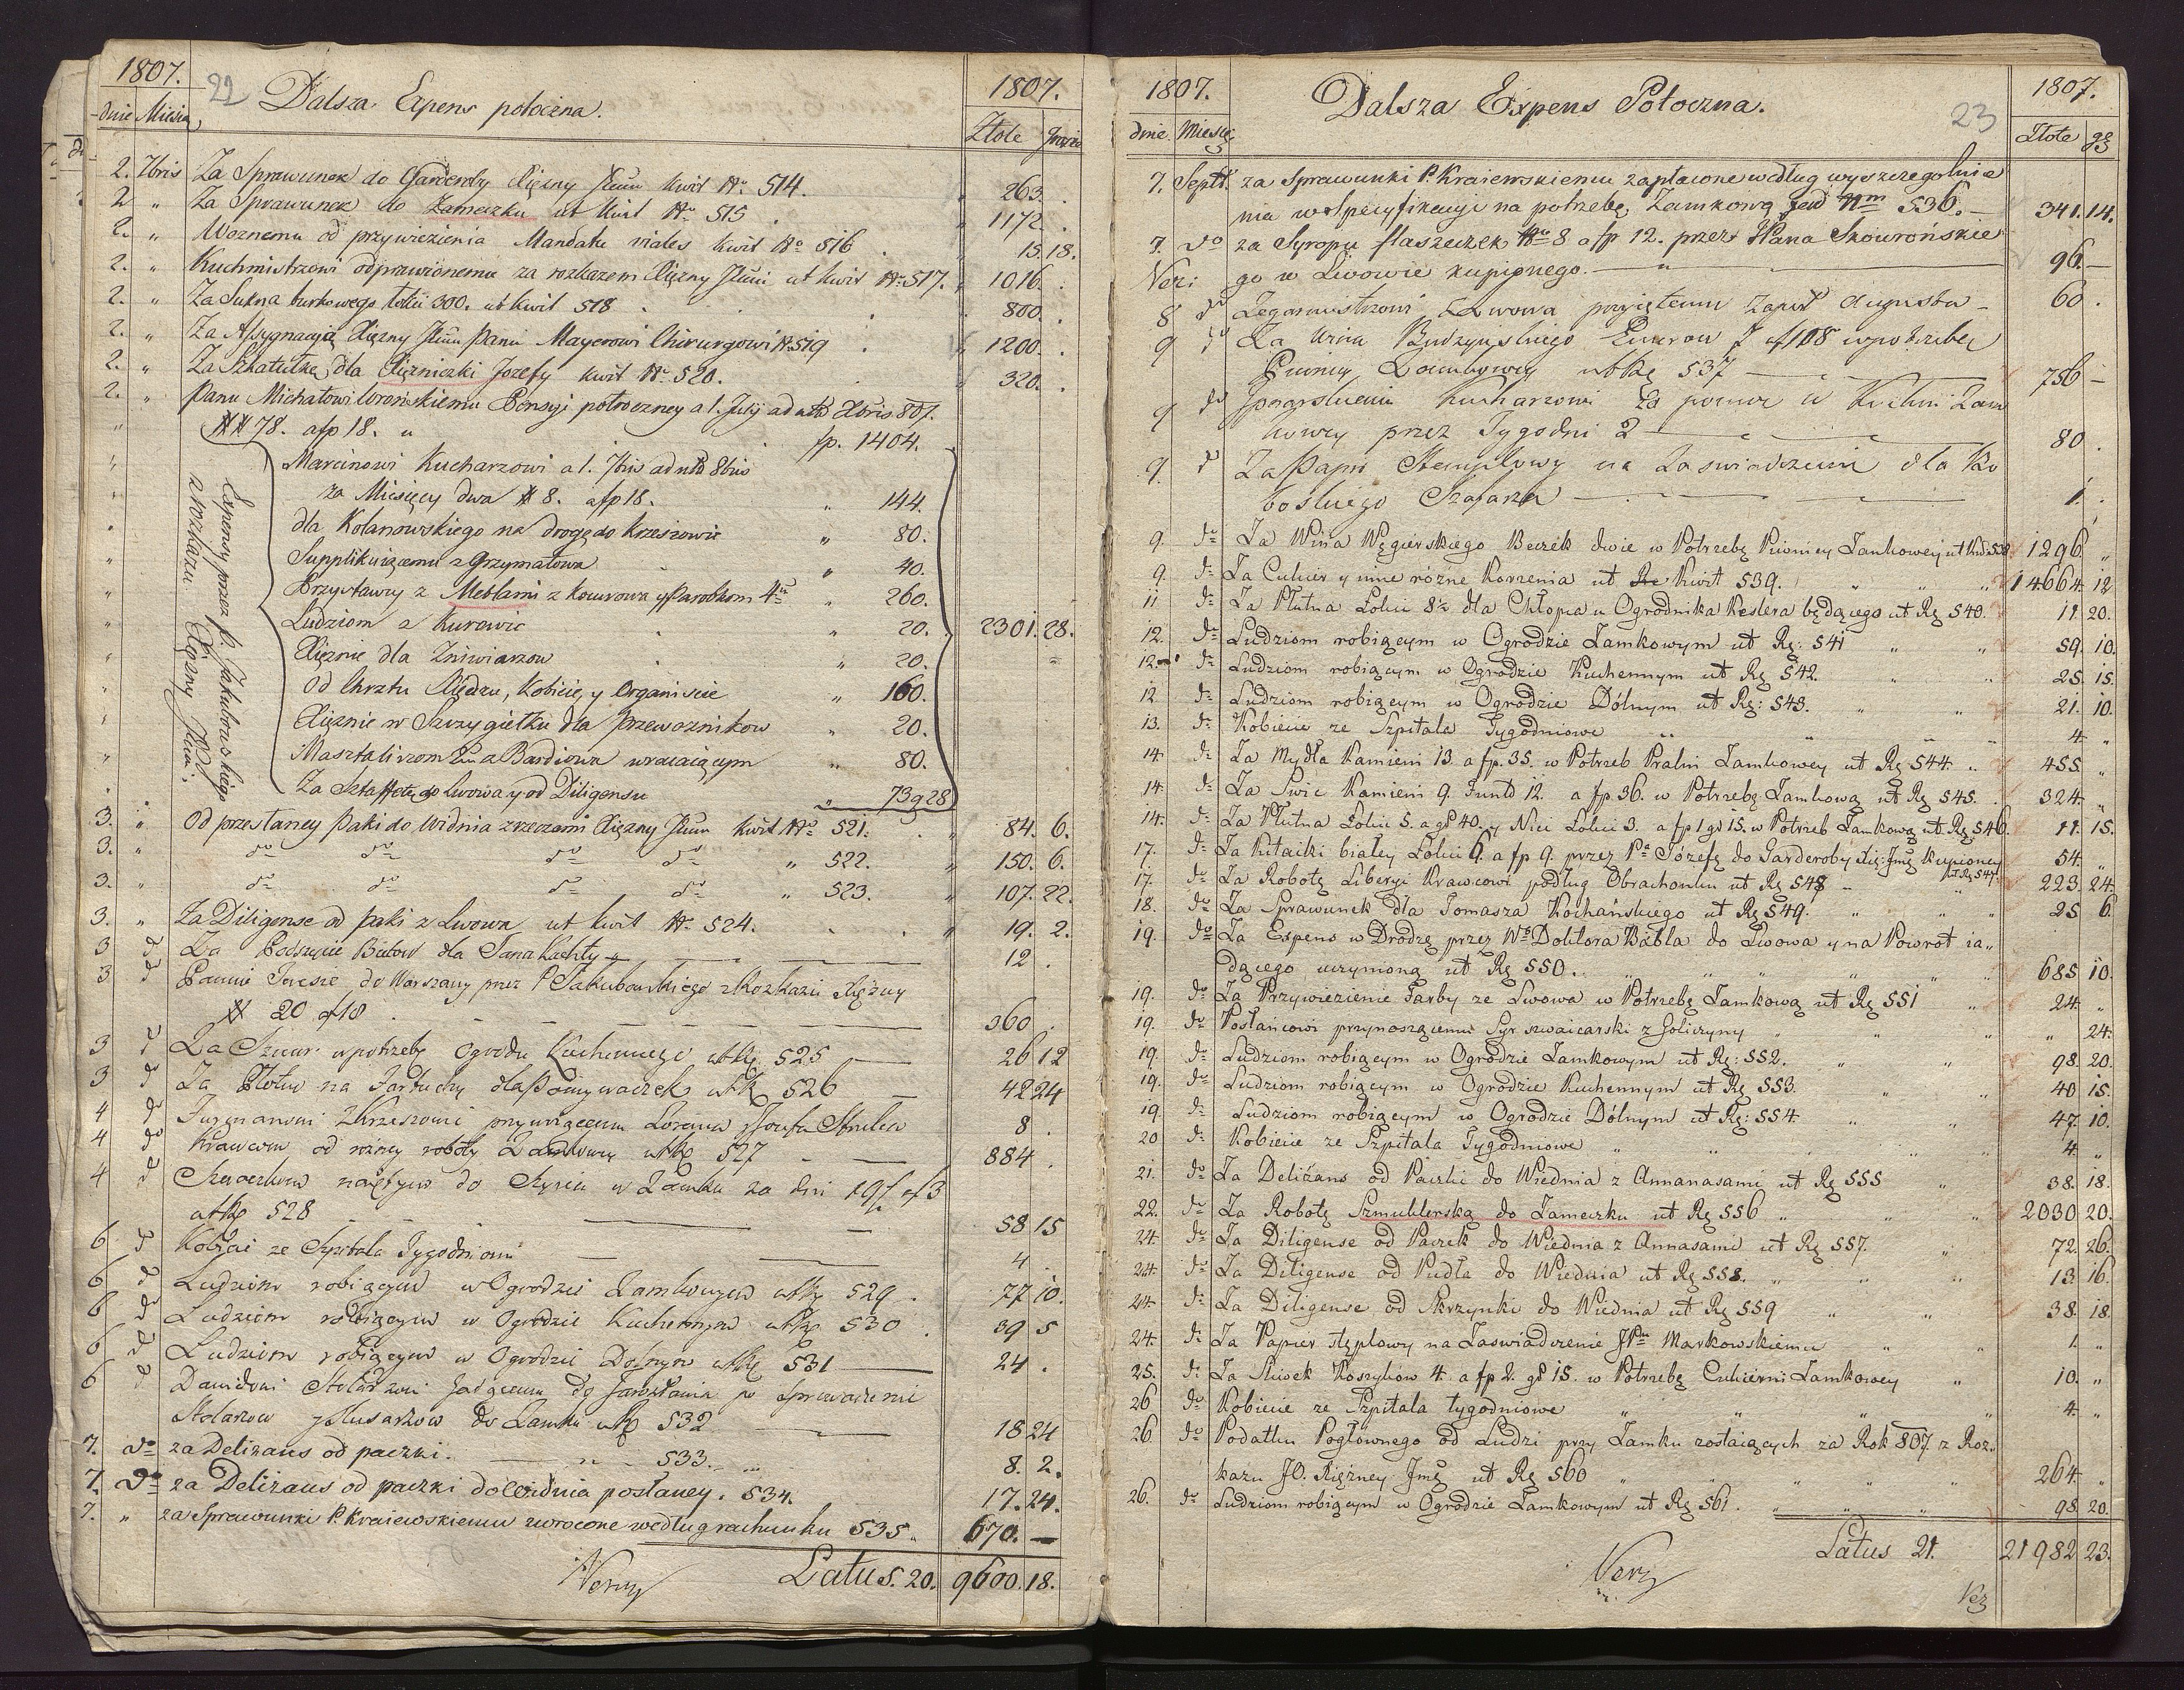 1807.
22
Dalsza Expens potoczna.
1807.
dnie Miesią
Złote grosze
2. 7bris Za Sprawunek do Garderoby Xiężny Jmci Kwit No 514. 263. .
2 " Za Sprawunek do Zameczku ut Kwit No 515 1172. .
2. " Woznemu od przywiezienia Mandatu viales Kwit No 516 15. 18.
2. " Kuchmistrzowi odprawionemu za rozkazem Xiężny Jmci ut Kwit No 517. 1016. .
2. " Za Sukna burkowego Łokci 300. ut Kwit 518 800. .
2. " Za Assygnacyią Xiężny Jmci Panu Mayerowi Chirurgowi No 519 1200. .
2. " Za Szkatułkę dla Xiężniczki Jozefy Kwit No 520. 320. .
2. " Panu Michałowi Worońskiemu Pensyi połroczney a 1. July ad ult Xbris 807.
" ## 78. afp 18. " fp. 1404.
Expensy przez P. Jakubowskiego
z rozkazu Xiężny Jmci.
" Marcinowi Kucharzowi a 1. 7bris ad ultd 8bris
" za Miesięcy dwa # 8. afp 18. " 144.
" dla Kolanowskiego na drogę do Krzeszowic " 80.
" Supplikuiącemu z Grzymałowa " 40.
" Przystawcy z Meblami z Komrowa y Parobkom 4m " 260.
" Ludziom z Kurowic " 20. 2301. 28.
" Xiężnie dla Zniwiarzow " 20.
" Od Chrztu Xiędzu, Kobicie, y Organiscie " 160.
" Xiężnie w Szczygiełku dla Przewoznikow " 20.
" Masztalirzom z Bardiowa wracaiącym " 80.
" Za Sztaffetę do Lwowa y od Diligensu " 73 g 28
3. " Od przesłaney Paki do Widnia z rzeczami Xiężny Jmci Kwit No 521. 84. 6.
3. " do do do do " 522. 150. 6.
3. " do do do do " 523. 107. 22.
3. " Za Diligense od Paki z Lwowa ut Kwit No 524. 19. 2.
3 do Za Podszycie Butów dla Jana 12 .
3 do Pannie Teresie do Warszawy przez P Jakubowskiego z Rozkazu Xiężny
# 20 af 18 360 .
3 do Za w potrzebę Ogrodu Kuchennego ut Rg 525 26 12
3 do Za Płótno na Fartuchy dla Pomywaczek ut Rg 526 42 24
4 do Furmanowi z Krzeszowic 8 .
4 do Krawcom od rożney roboty Zamkowey ut Rg 527 884 .
4 do Szwaczkom naiętym do Szycia w Zamku za dni 19½ af 3
ut Rg 528 58 15
6 do Kobicie ze Szpitala Tygodniowe 4 .
6 do Ludziom robiącym w Ogrodzie Zamkowym ut Rg 529 . 77 10.
6 do Ludziom robiącym w Ogrodzie Kuchennym ut Rg 530 . 39 5
6 do Ludziom robiącym w Ogrodzie Dolnym ut Rg 531 24 .
6 do Dawidowi Stolarzowi Jadącemu do Jarosławia po Sprowadzenie
Stolarzow y Slusarzow do Zamku ut Rg 532 18 24
7. do za Deliżans od paczki. " 533. " 8. 2.
7. do za Deliżans od paczki do Widnia posłaney. 534. 17. 24.
7. " za Sprawunki P. Kraiewskiemu zwrocone według rachunku 535. 670. —
Latus. 20. 9600. 18.
1807.
Dalsza Expens Potoczna.
23
1807.
dnie Miesięc
Złote gr
7. Septr. za Sprawunki P. Kraiewskiemu zapłacone według wyszczegolnie
nia w Specyfikacyi na potrzebę Zamkową Nm 536. — 341. 14.
7. do za Syropu flaszeczek No 8 a fp 12. przez Pana Skowrońskie
go w Lwowie kupionego. — " — 96. —
8 do Zegarmistrzowi z Lwowa przyiętemu 60 .
9 do Za Wina Budzyńskiego af 108 w potrzebę
Piwnicy Zamkowey ut Rg 537 756 —
9 do Kucharzowi za pomoc w Kuchni Zam
kowey przez Tygodni 2 80 .
9. do Za Papir Stemplowy na Zaswiadczenie dla Ko
boskiego Szafarza 1 .
9. do Za Wina Węgierskiego Beczek dwie w Potrzebę Piwnicy Zamkowey ut Kwit 538 1296 "
9. do Za Cukier y inne różne Korzenia ut Kwit 539. " " " 14664. 12
11 do Za Płutna Łokci 8½ dla Chłopca u Ogrodnika Keslera będącego ut Rg 540. 11. 20.
12. do Ludziom robiącym w Ogrodzie Zamkowym ut Rg: 541 " " 59. 10.
12. do Ludziom robiącym w Ogrodzie Kuchennym ut Rg 542. " " 25. 15.
12 do Ludziom robiącym w Ogrodzie Dólnym ut Rg: 543. " " 21. 10.
13. do Kobicie ze Szpitala Tygodniowe " " " " 4. "
14. do Za Mydła Kamieni 13. a fp. 35. w Potrzeb Pralni Zamkowey ut Rg 544. " 455. "
14. do Za Swic Kamieni 9. Funtó 12. a fp 36. w Potrzebę Zamkową ut Rg 545. 324. "
14. do Za Płutna Łokci 5. a gr 40. y Nici Łokci 3. a fp 1 gr 15. w Potrzeb Zamkową ut Rg 546. 11. 15.
17. do Za Kitaiki białey Łokci 6. a fp 9. przez Pa Józefę do Garderoby Xię: Jmę Kupioney ut Rg 547. 54. "
17. do Za Robotę Liberyi Krawcowi podług Obrachonku ut Rg 548 " 223. 24.
18. do Za Sprawunek dla Tomasza Kochańskiego ut Rg 549. " " " 25 6.
19. do Za Expens w Drodze przez Wo Doktora Bábla do Lwowa y na Powrót ia„
dącego uczynioną ut Rg 550. " " " " " " 685 10.
19. do Za Przywiezienie Farby ze Lwowa w Potrzebę Zamkową ut Rg 551 " 24. "
19. do Posłańcowi przynoszącemu Syr szwaicarski z " " " " 24.
19. do Ludziom robiącym w Ogrodzie Zamkowym ut Rg: 552. " " 98. 20.
19. do Ludziom robiącym w Ogrodzie Kuchennym ut Rg 553. " " 40 15.
19. do Ludziom robiącym w Ogrodzie Dólnym ut Rg: 554. " " 47. 10.
20 do Kobicie ze Szpitala Tygodniowe " " " " 4. "
21. do Za Deliżans od Paczki do Wiednia z Annanasami ut Rg 555 " 38. 18.
22. do Za Robotę Szmuklerską do Zameczku ut Rg 556 " " " 2030 20.
24. do Za Diligense od Paczek do Wiednia z Annasami ut Rg 557. " 72. 26.
24. do Za Diligense od Pudła do Wiednia ut Rg 558. " " " 13. 16.
24. do Za Diligense od Skrzynki do Wiednia ut Rg 559 " " 38. 18.
24. do Za Papier stęplowy na Zaswiadczenie JPu Markowskiemu " " 1. "
25. do Za Sliwek Koszyków 4. a fp 2. gr 15. w Potrzebę Cukierni Zamkowey " 10. "
26 do Kobicie ze Szpitala tygodniowe " " " " 4. "
26 do Podatku Pogłównego od Ludzi przy Zamku zostaiących za Rok 807. z Roz„
kazu JO. Xiężney Jmę ut Rg 560 " " " " 264. "
26. do Ludziom robiącym w Ogrodzie Zamkowym ut Rg 561. " " " 98. 20.
Latus 21. 21982. 23.